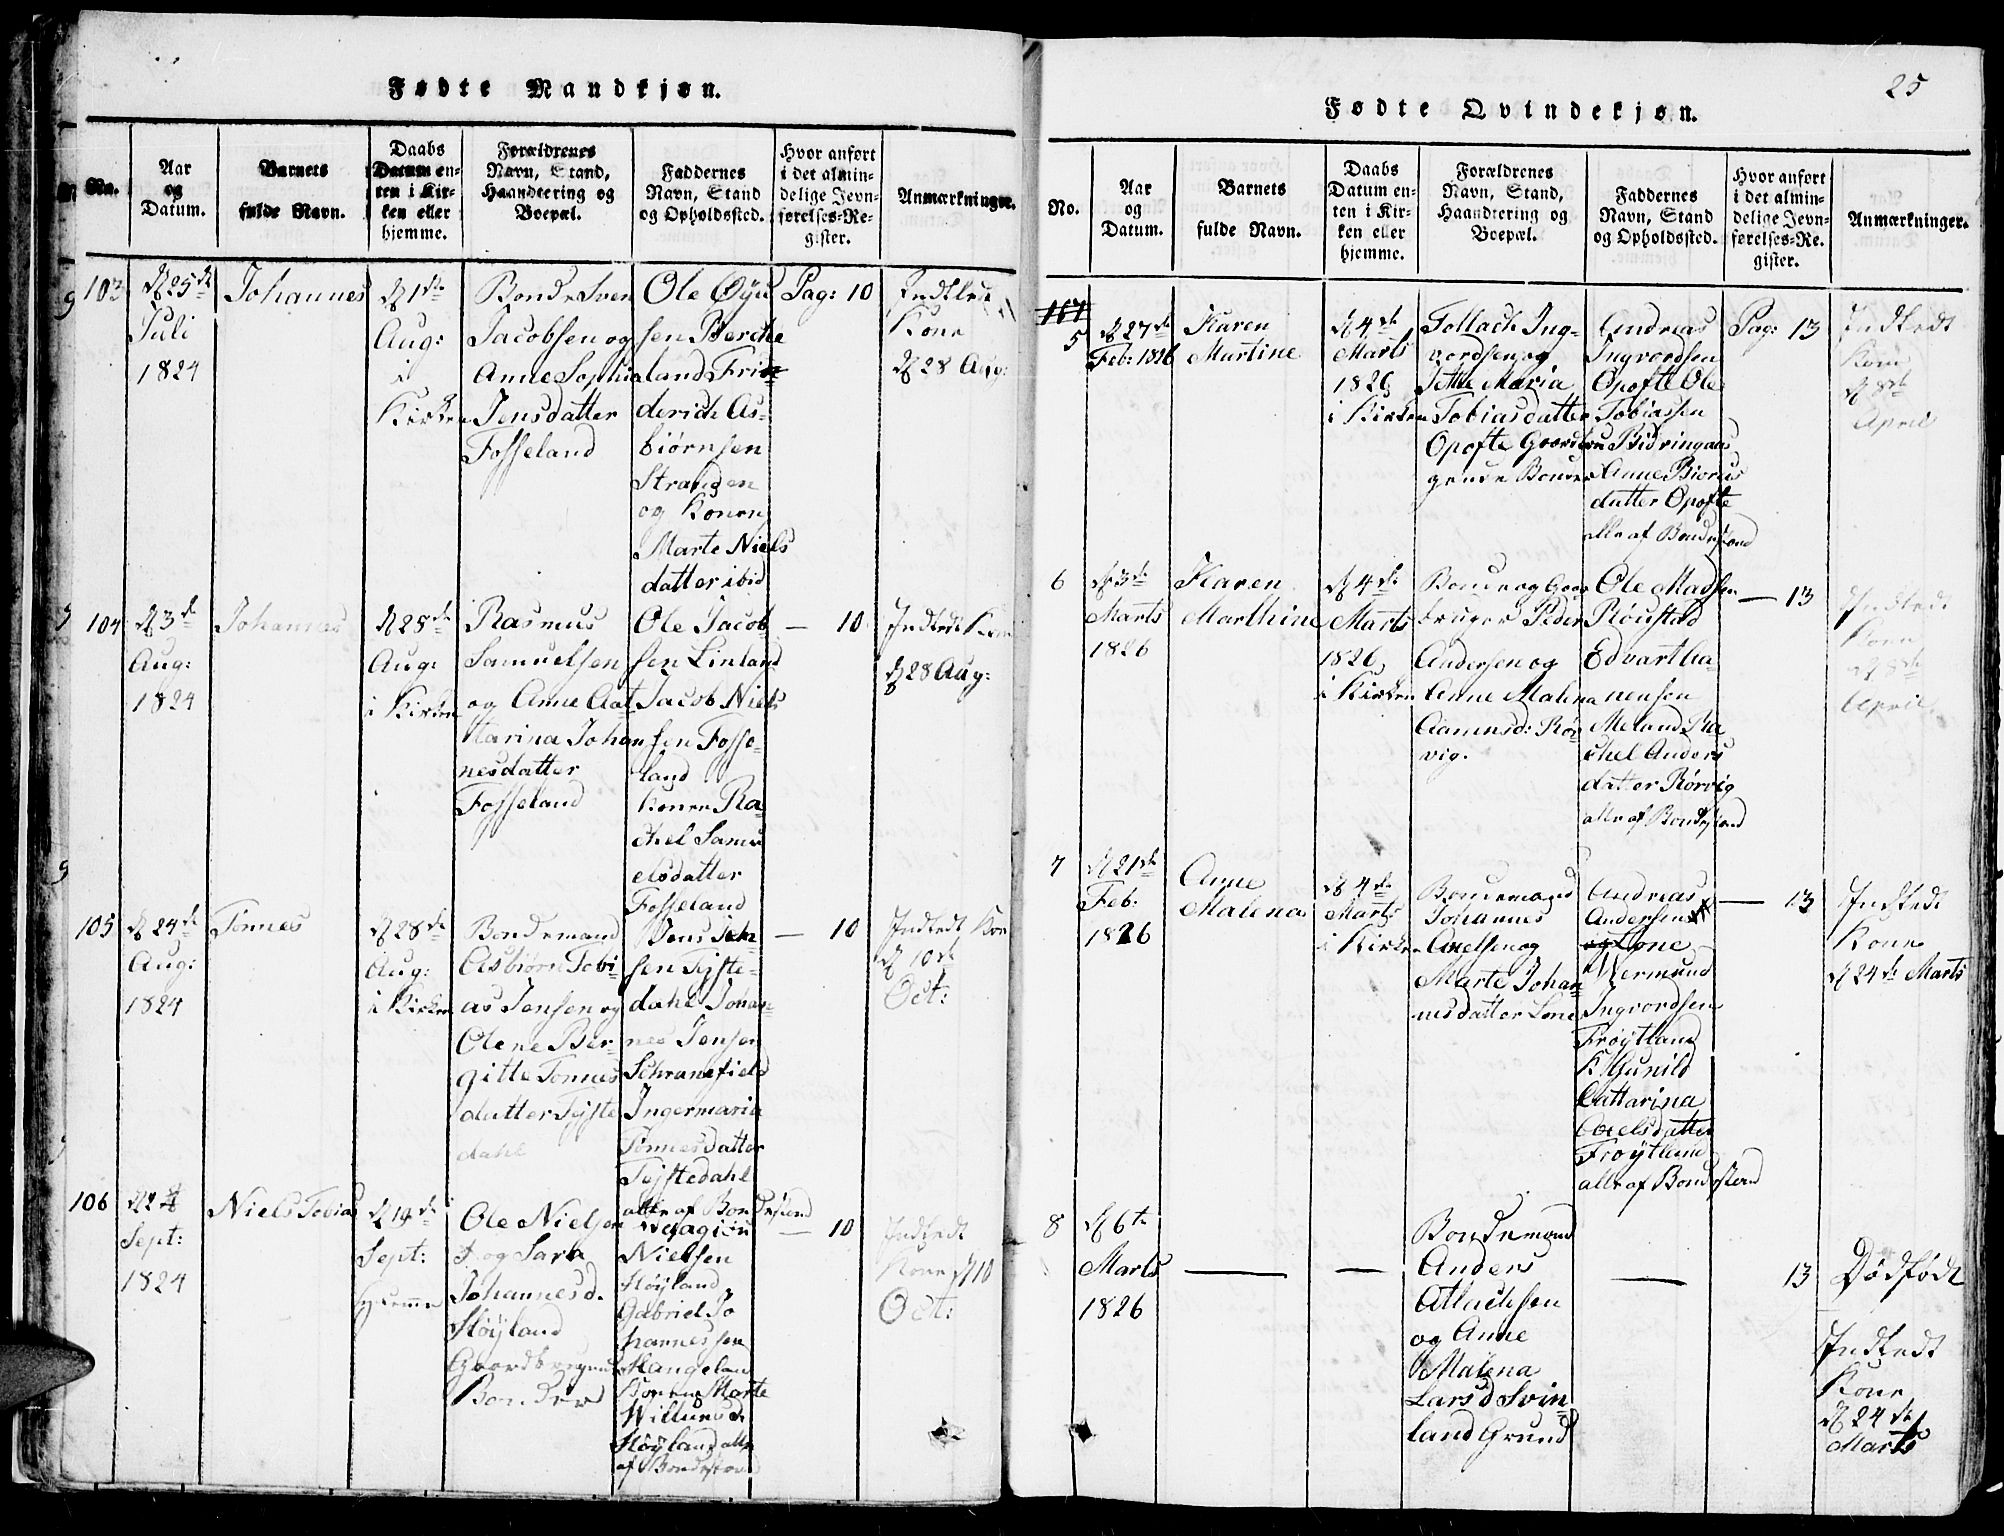 Fødte Mandkjøn.
No.
Aar
og
Datum.
Barnets
fulde Navn.
Daabs
Datum en-
ten i Kir-
ken eller
hjemme.
Forældrenes
Navn, Stand,
Haandtering og
Boepæl.
Faddernes
Navn, Stand
og Opholdssted.
Hvor anført
i det almin-
delige Jevn-
førelses-Re-
gister.
Anmærkninger.
103
d 25de
Juli
1824
Johannes
d 1ste
Aug:
i
Kirken
Bonde Sven
Jacobsen og
Anne Sophia
Jensdatter
Fosseland
Ole Øyu
sen Berche
land Frid
derich As-
biørnsen
Stranden
og Konen
Marte Niels
datter ibid
Pag: 10
Indledt
Kone
d 28 Aug:
104
d 3de
Aug:
1824
Johannes
d 28de
Aug:
i Kirken
Rasmus
Samuelsen
og Anne Cat
tarina Johan
nesdatter
Fosseland
Ole Jacob
sen Linland
Jacob Niels
sen Fosse-
land
Konen Ra
chel Samu
elsdatter
Fosseland
— 10
Indledt Kone
d 28 Aug:
105
d 24de
Aug:
1824
Tønnes
d 28de
Aug:
i Kirken
Bondemand
Asbiørn Tobi-
as Jensen og
Olene Ber-
gitte Tønnes
datter Tejste
dahl
Jens Jen
sen Tejste-
dahl Johan-
nes Jensen
Schranefield
Ingermaria
Tønnesdatter
Tejstedahl
alle af Bondestand
— 10
Indledt Kone
d 10de
Oct:
106
d 2
Sept:
1824
Niels Tobias
d 19de
Sept:
hjemme
Ole Nielsen
og Sara
Johannesd.
Høyland
Gaardbrugende
Bønder
Nielsen
Høyland
Gabriel Jo
hannessen
Hangelan
Konen Marte
Willumsd
Høyland alle
af Bondestand
— 10
Indledt
Kone d 10
Oct:
25
Fødte Qvindekjøn.
No.
Aar
og
Datum.
Barnets
fulde Navn.
Daabs
Datum en-
ten i Kir-
ken eller
hjemme.
Forældrenes
Navn, Stand,
Haandtering og
Boepæl.
Faddernes
Navn, Stand
og Opholdssted.
Hvor anført
i det almin-
delige Jevn-
førelses-Re-
gister.
Anmærkninger.
167
5
d 27de
Feb: 1826
Karen
Martine
d 4de
Marts
1826
i Kirken
Tollach Ing-
vordsen og
Maria
Tobiasdatter
Opofte Gaardbru
gende Bønder
Andreas
Ingvordsen
Opofte Ole
Tobiassen
Bidringaas
Anne Biørns
datter Opofte
alle af Bondestand
Pag: 13
Indledt
Kone
d 8de
April
6
d 3de
Marts
1826
Karen
Marthine
d 4de
Marts
1826
i Kirken
Bonde og Gaar
bruger Peder
Andersen og
Anne Malena
Aanensd: Rør
vig.
Ole Madsen
Røustad
Edvart Aa-
nensen
Meland Ra
chel Anders
datter Rørvig
alle af Bondestand
— 13
Indledt
Kone
d 8de
April
7
d 21de
Feb.
1826
Anne
Malena
d 4de
Marts
i Kirken
Bondemand
Johannes
Axelsen og
Marte Johan
nesdatter Lone
Andreas
Andersen
og Lone
Wermund
Ingvordsen
Frøytland
K Gunild
Cattarina
Axelsdatter
Frøytland
alle af Bondestand
— 13
Indledt
Kone
d 24de Marts
8
d 6te
Marts
1826
—
—
Bondemand
Anders
Atlachsen
og Anne
Malena
Larsd Svin-
land Grund
—
13
Dødfødt
Indledt
Kone
d 24de
Marts